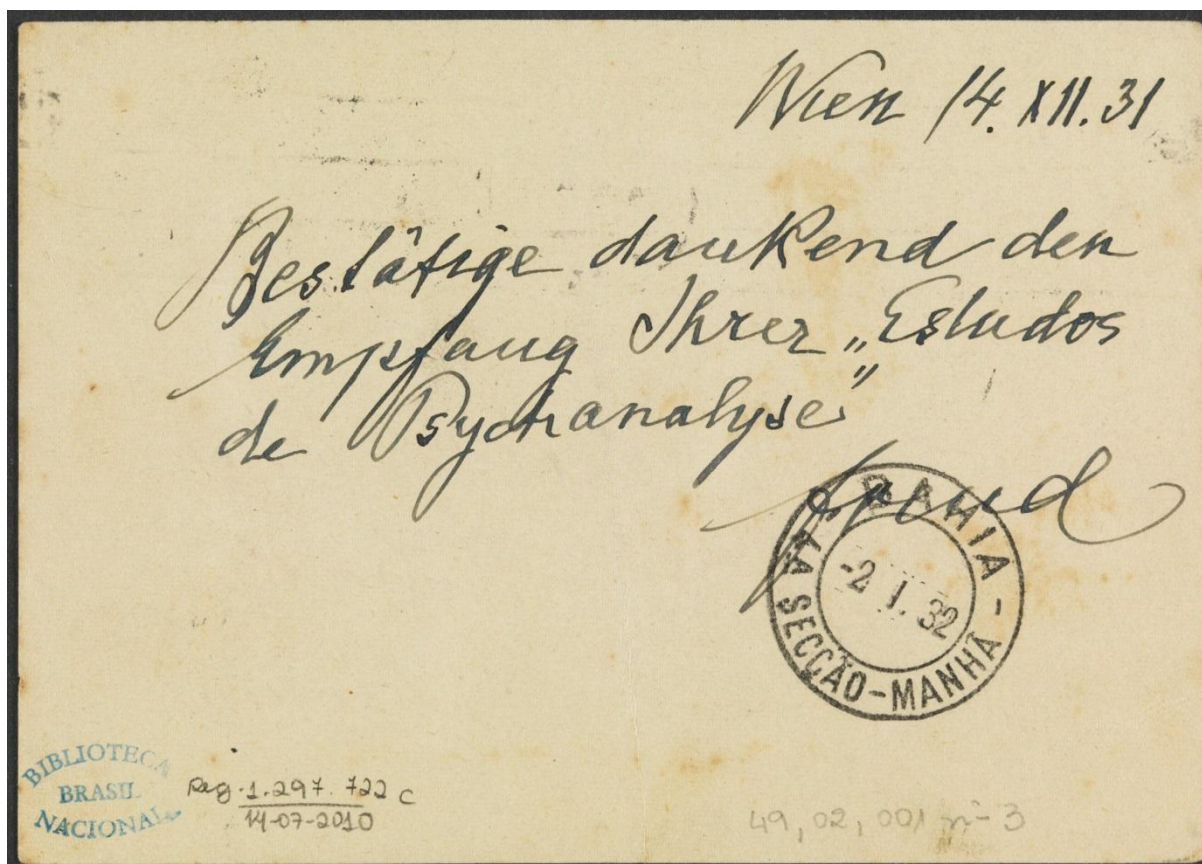 Wien 14. XII. 31
Bestätige dankend den
Empfang Ihrer „Estudos
de Psychanalyse"
Freud
BAHIA -
-2 I. 32
4A SECÇÃO-MANHÃ
BIBLIOTECA
BRASIL
NACIONAL
Reg. 1.297.722 c
14-07-2010
49,02,001 nº 3